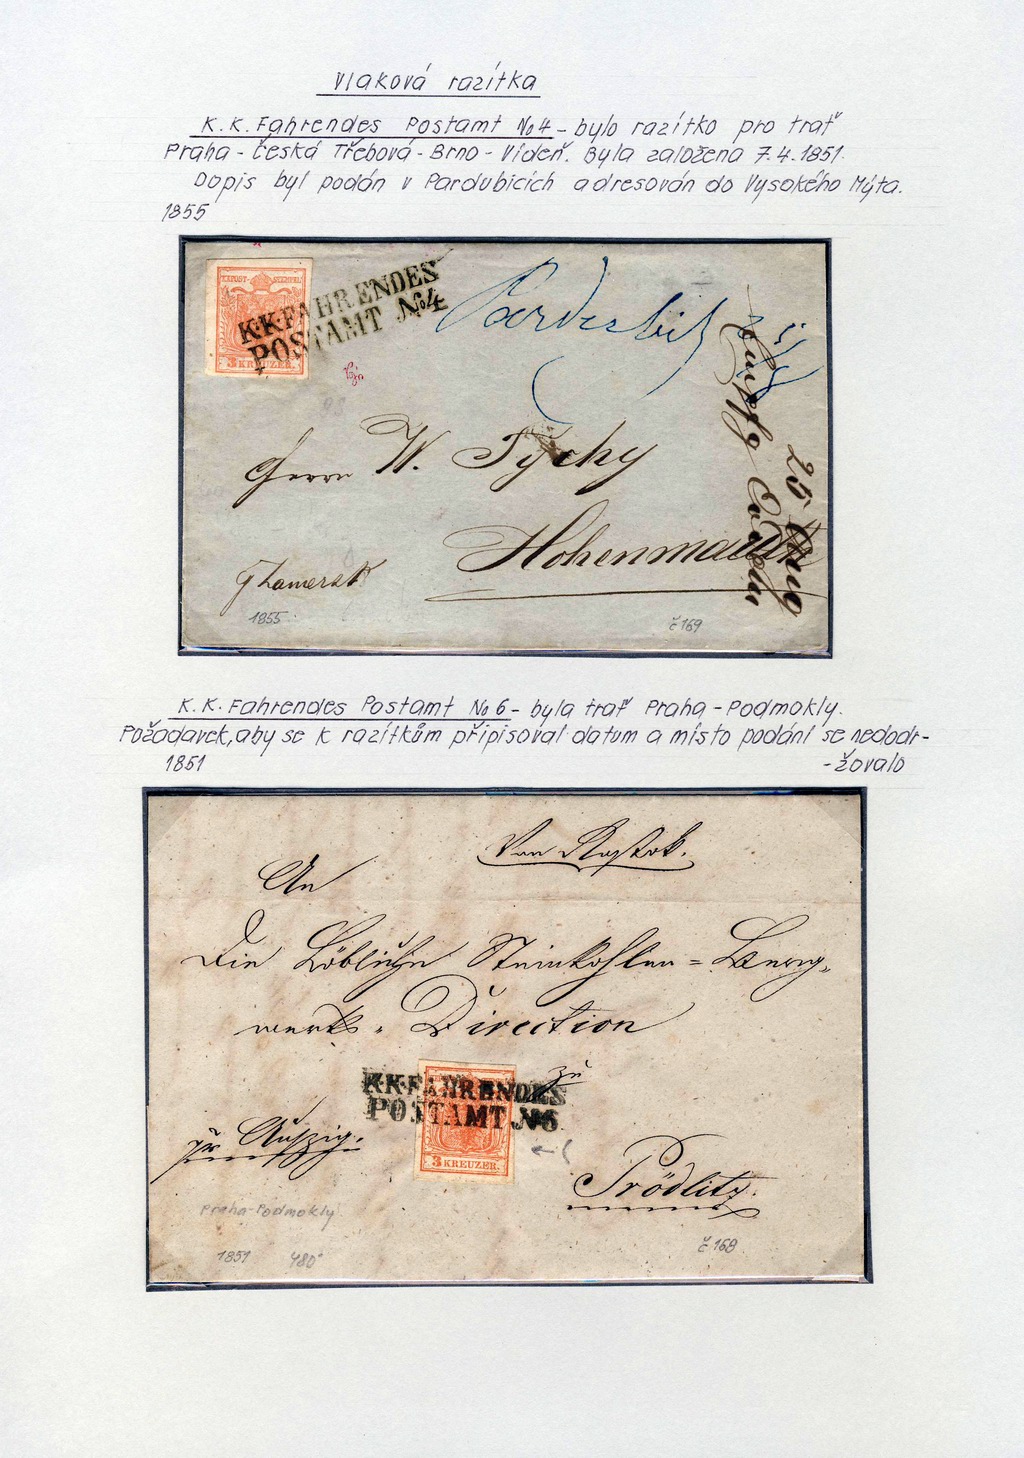 Vlaková razítka
K.K. Fahrendes Postamt No 4 - bylo razítko pro trať
Praha - Česká Třebová - Brno - Vídeň. Byla založena 7.4.1851.
Dopis byl podán v Pardubicích adresován do Vysokého Mýta.
1855
K.K.FAHRENDES
POSTAMT No4
3 KREUZER.
Pardubitz
Herrn W. Tychy
Hohenmauth
1855
č169
K.K. Fahrendes Postamt No 6 - byla trať Praha - Podmokly.
Požadavek, aby se k razítkům připisoval datum a místo podání se nedodr-
1851
-žovalo
Von Rostok.
An
Die Löbliche Steinkohlen = Berg-
werks - Direction
zu
K.K.FAHRENDES
POSTAMT No6
3 KREUZER.
pr Aussig.
Prödlitz.
Praha-Podmokly
1851
480
č168